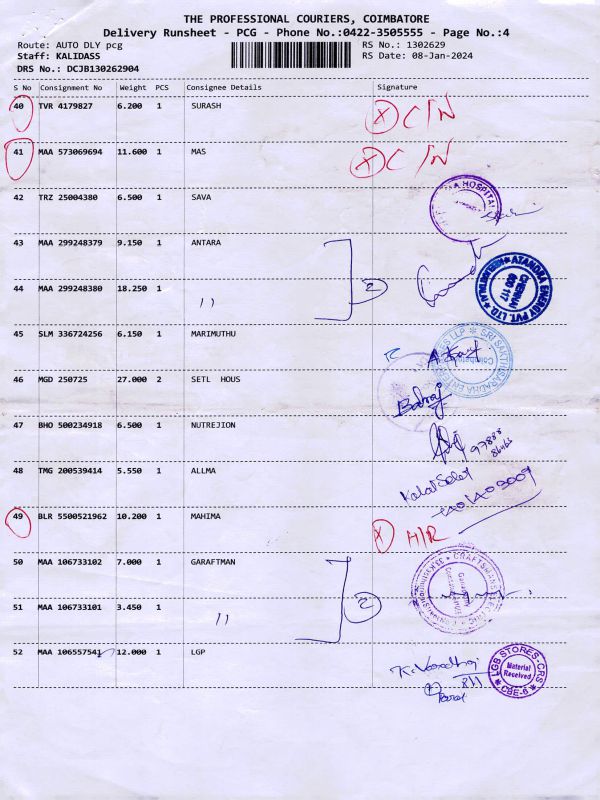 THE PROFESSIONAL COURIERS, COIMBATORE
Delivery Runsheet - PCG - Phone No.:0422-3505555 - Page No.:4
Route: AUTO DLY pcg RS No.: 1302629
Staff: KALIDASS RS Date: 08-Jan-2024
DRS No.: DCJB130262904
S No Consignment No Weight PCS Consignee Details Signature
40 TVR 4179827 6.200 1 SURASH C/N
41 MAA 573069694 11.600 1 MAS C/N
42 TRZ 25004380 6.500 1 SAVA HOSPITAL
43 MAA 299248379 9.150 1 ANTARA
2
44 MAA 299248380 18.250 1 〃 ATANDRA ENERGY PVT. LTD. CHENNAI 600 117
45 SLM 336724256 6.150 1 MARIMUTHU
46 MGD 250725 27.000 2 SETL HOUS
47 BHO 500234918 6.500 1 NUTREJION
48 TMG 200539414 5.550 1 ALLMA
49 BLR 5500521962 10.200 1 MAHIMA H/R
50 MAA 106733102 7.000 1 GARAFTMAN
2
51 MAA 106733101 3.450 1 〃
52 MAA 106557541 12.000 1 LGP
LGB STORES-CRS Material Received CBE-6